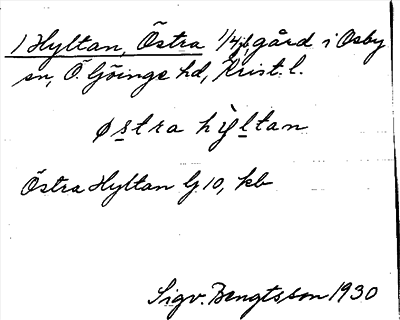 1 Hyltan, Östra 1/4 gård i Osby
sn, Ö. Göinge hd, Krist. l.
østra hỳltan
Östra Hyltan G 10, kb
Sigv. Bengtsson 1930